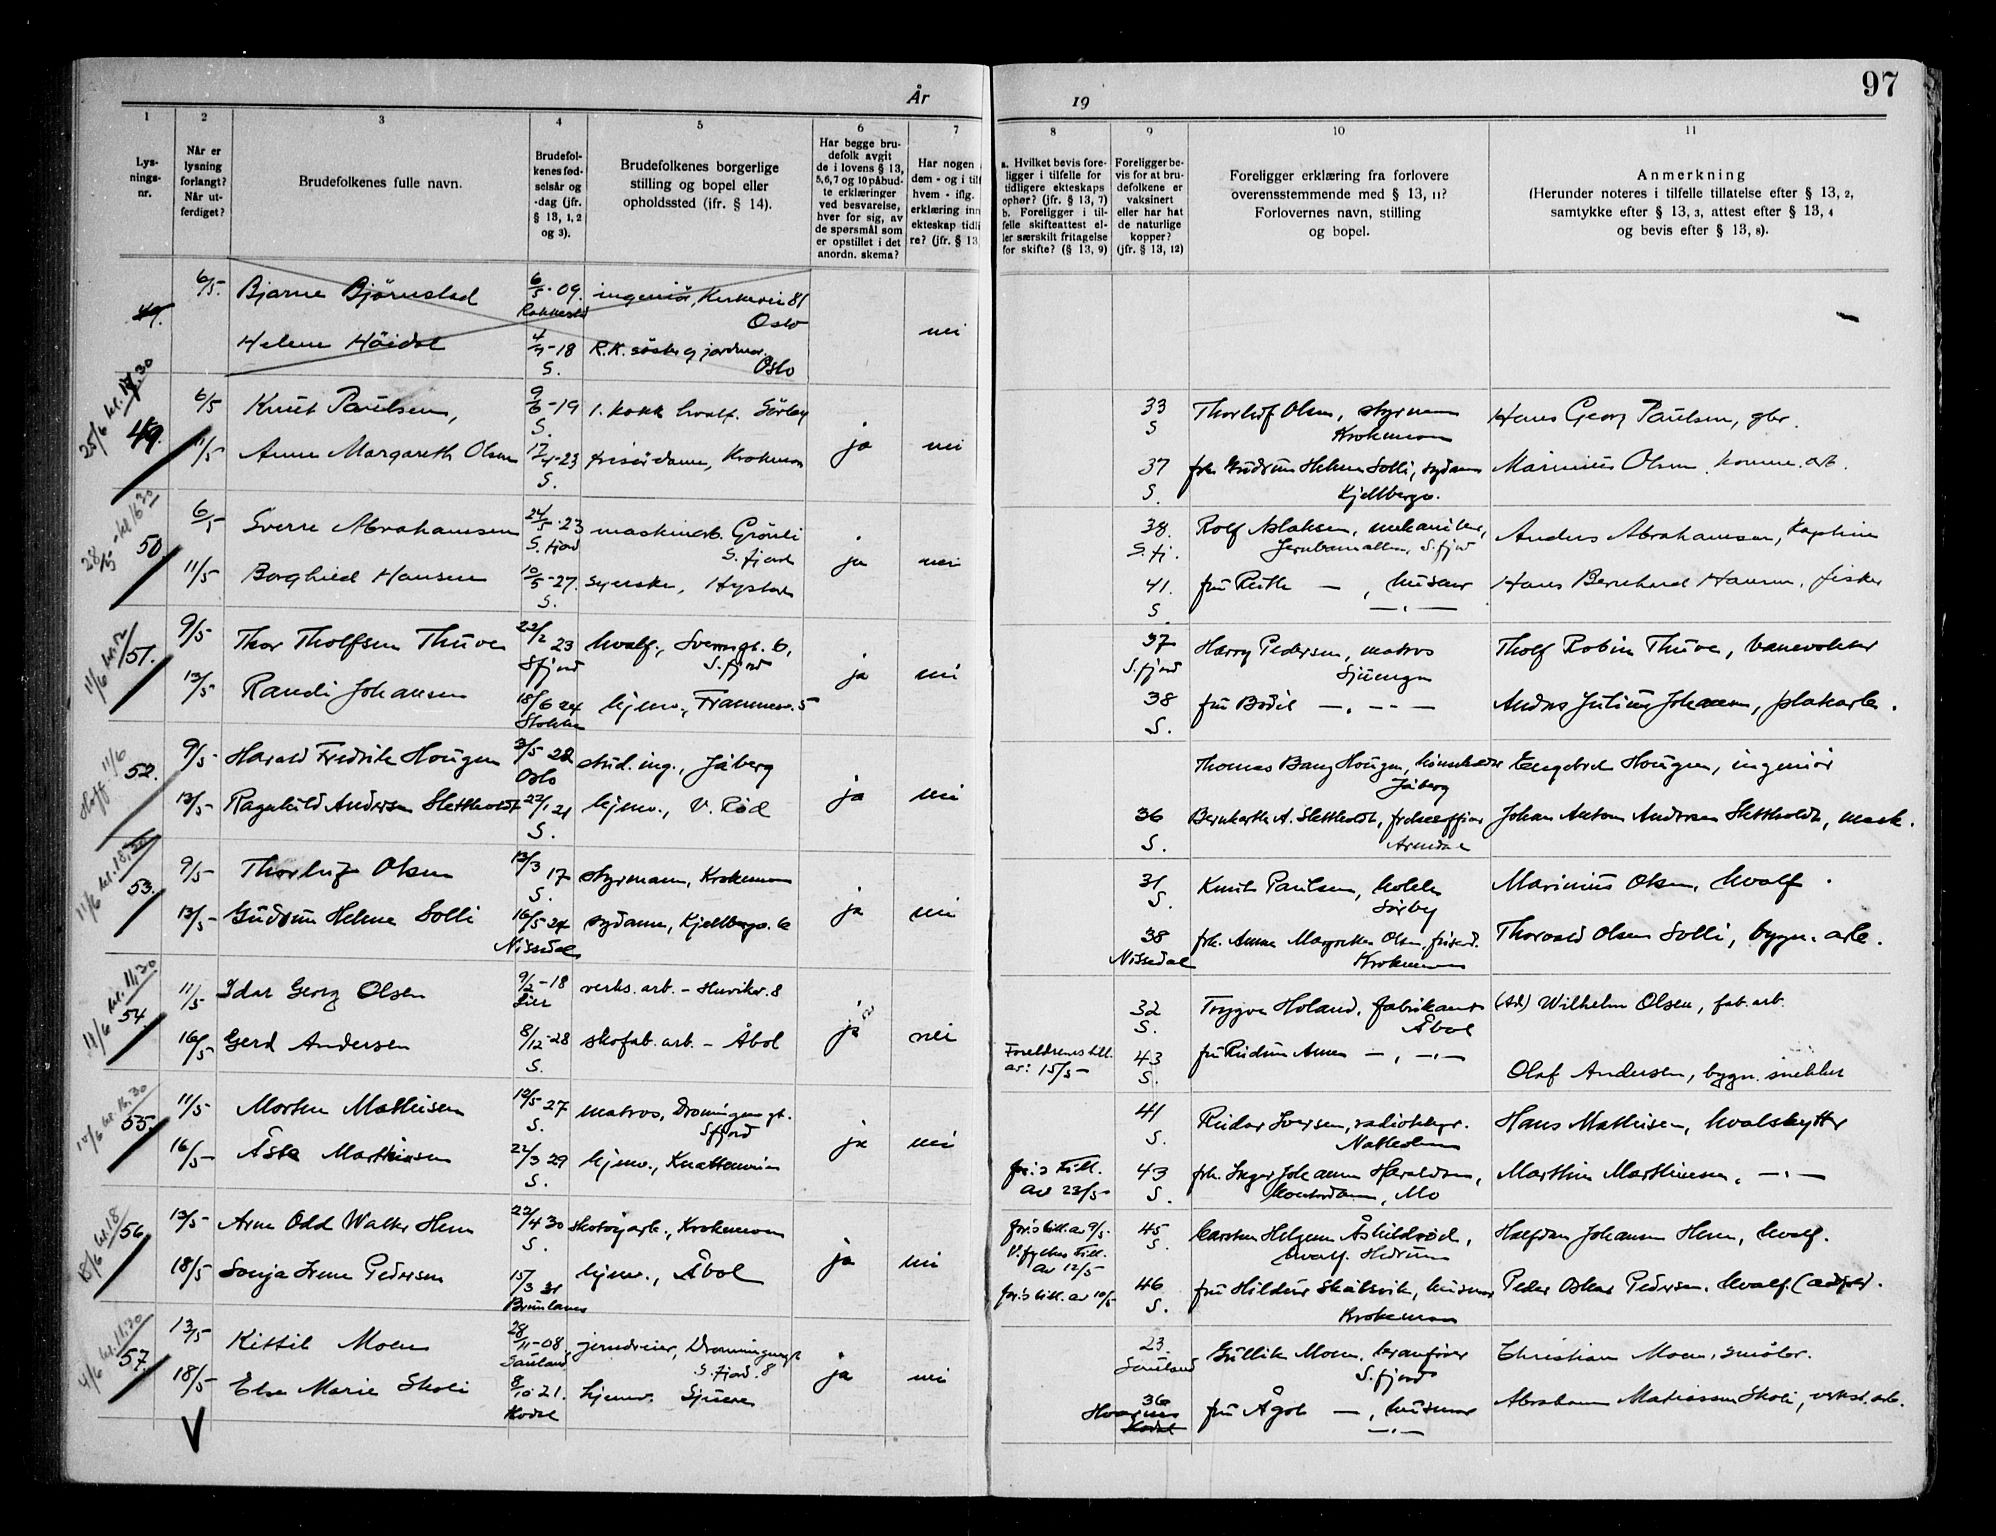 97
År
19
1
2
3
4
5
6
7
8
9
10
11
Lys-
nings-
nr.
Når er
lysning
forlangt?
Når ut-
ferdiget?
Brudefolkenes fulle navn.
Brudefol-
kenes fød-
selsår og
-dag (jfr.
§ 13, 1, 2
og 3).
Brudefolkenes borgerlige
stilling og bopel eller
opholdssted (ifr. § 14).
Har begge bru-
defolk avgit
de i lovens § 13,
5, 6, 7 og 10 påbud-
te erklæringer
ved besvarelse,
hver for sig, av
de spørsmål som
er opstillet i det
anordn. skema?
Har nogen
dem - og i til
hvem - iflg.
erklæring inn
ekteskap tidli
re? (jfr. § 13,
a. Hvilket bevis fore-
ligger i tilfelle for
tidligere ekteskaps
ophør? (jfr. § 13, 7)
b. Foreligger i til-
felle skifteattest el-
ler særskilt fritagelse
for skifte? (§ 13, 9)
Foreligger be-
vis for at bru-
defolkene er
vaksinert
eller har hat
de naturlige
kopper?
(jfr. § 13, 12)
Foreligger erklæring fra forlovere
overensstemmende med § 13, 11?
Forlovernes navn, stilling
og bopel.
Anmerkning
(Herunder noteres i tilfelle tillatelse efter § 13, 2,
samtykke efter § 13, 3, attest efter § 13, 4
og bevis efter § 13, 8).
49.
6/5. Bjarne Bjørnstad 6/5-09. ingeniör, Kirkevei 81
Oslo
Helene Höidal 4/7-18 R.K. söster og jordmor. nei
S. Oslo
25/6
49.
6/5 Knut Paulsen, 9/6-19 1. kokk hvalf. Sörby 33 Thorleif Olsen, styrmann Hans Georg Paulsen, gbr.
S. S Krokemoen
11/5 Anne Margareth Olsen 17/4-23 frisördame, Krokemoen ja nei 37 frk. Gudrun Helene Solli, sydame Marinius Olsen, komm. arb.
S. S. Kjellbergv.
28/5 - kl 16 30
50
6/5 Sverre Abrahamsen 24/5-23 maskinarb. Grönli 38. Rolf Aslaksen, mekaniker, Anders Abrahamsen, Kaptein
S. fjord S. fjord S. fj. Jernbanealleen, S. fjord
11/5 Borghild Hansen 10/5-27. syerske, Hystad ja nei 41. fru Ruth — , husmor Hans Bernhard Hansen, fisker
S. S —,—
11/6
51.
9/5 Thor Tholfsen Thuve 22/2 23 hvalf., Sverresgt. 6, 37 Harry Pedersen, matros Tholf Robin Thuve, banevokter
Sfjord S. fjord S. fjord
13/5 Randi Johansen 18/6 24 hjemv., Framnesv. 5 ja nei 38 fru Bodil —,— — Anders Julius Johansen, platearb.
Stokke S.
11/6
52.
9/5 Harald Fredrik Hougen 3/5 22 stud. ing., Jåberg Thomas Bang Hougen, Engebret Hougen, ingeniör
Oslo Jåberg
13/5 Ragnhild Andersen Slettholdt 22/1 21 hjemv., V. Rød ja nei 36 A. Slettholdt, Johan Anton Andersen Slettholdt, mask.
S. S. Arendal
11/6
53.
9/5 Thorleif Olsen 12/3 17 styrmann, Krokemoen 31 Knut Paulsen, kokk Marinius Olsen, hvalf.
S. S. Sörby
13/5 Gudrun Helene Solli 16/5-24 sydame, Kjellbergv. 6 ja nei 38 frk. Anne Margrethe Olsen, frisörd. Thorvald Olsen Solli, bygn. arb.
Nissedal Nissedal Krokemoen
11/6 kl. 11,30
54.
11/5 Idar Georg Olsen 9/2-18 verks. arb. - Huvikv. 8 32 Trygve Holand, fabrikarb. (Ad) Wilhelm Olsen, fab. arb.
Lier S. Åbol
16/5 Gerd Andersen 8/12-28 skofab. arb. - Åbol ja nei Foreldrenes till. 43 fru —,— —,—
S. av: 15/5- S. Olaf Andersen, bygn. snekker
kl. 16.30
55.
11/5 Morten Mathisen 10/5 27 matros, Dronningensgt. 41 Reidar Iversen, radiotelegr. Hans Mathisen, hvalskytter
S. Sfjord S.
16/5 Åsta Marthinsen 22/3 29 hjemv., ja nei for.s till. 43 frk. Inger Johanne Haraldsen, Marthin Marthinsen, —,—
S. av 23/5- S. kontordame, Mo
18/6 kl. 18
56.
13/5 Arne Odd Walter Hem 22/4 30 skotöyarb., Krokemoen for.s till. av 9/5- 45 Carsten Helgem Åshildröd, Halfdan Johansen Hem, hvalf.
S. V. fylkes till. S. hvalf. Hedrum
av 12/5
18/5 Sonja Irene Pedersen 15/3 31 hjemv., Åbol ja nei for.s till. av 10/5 46 fru Hildur Skålsvik, husmor Peder Oskar Pedersen, hvalf.
Brunlanes S. Krokemoen
4/6 kl. 11.30
57.
13/5 Kittil Moen 28/11-08, jerndreier, Dronningensgt 23. Gullik Moen, kranförer Christian Moen, smöler.
Sauland S. fjord. 8 Sauland S. fjord
18/5 Else Marie Skoli 8/10 21. hjemv. ja nei 36 fru Ågot —, husmor Abraham Mathiassen Skoli, verkst. arb.
Kodal Kodal —,—
V